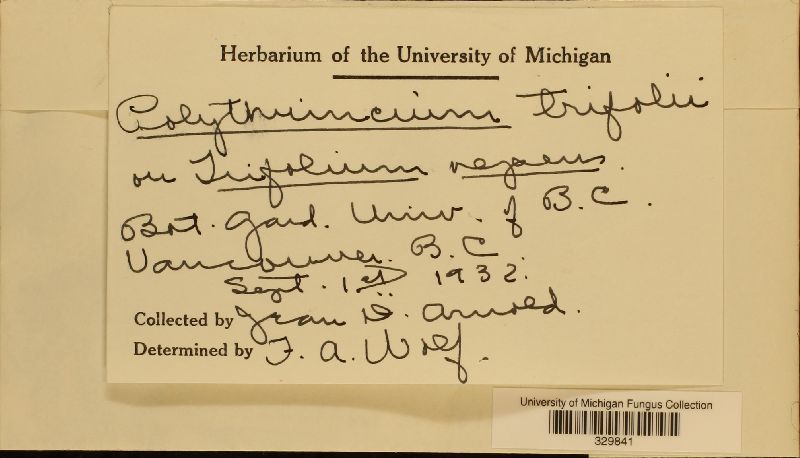 Herbarium of the University of Michigan
Polythrincium trifolii
on Trifolium repens.
Bot. Gard. Univ. of B.C.
Vancouver. B.C.
Sept. 1st 1932.
Collected by Jean D. Arnold.
Determined by F. A. Wolf.
University of Michigan Fungus Collection
329841